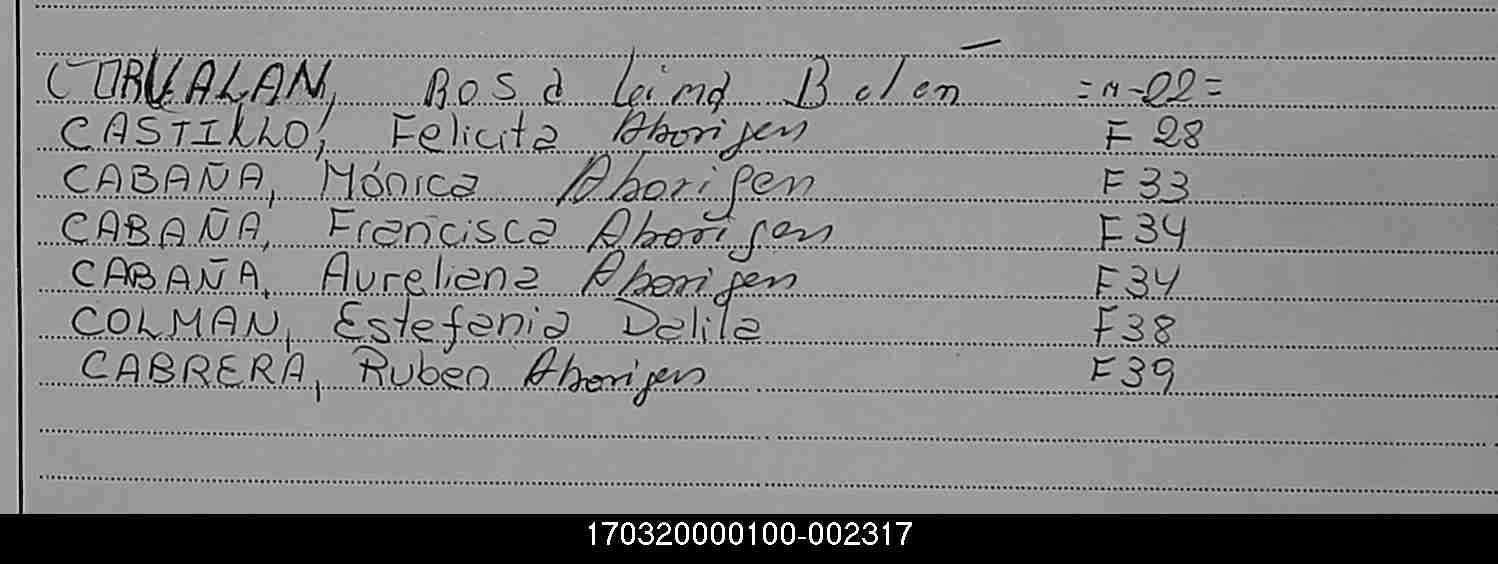 CORVALAN, Rosa Leima Belen =N-22=
CASTILLO, Felicita Aborigen F 28
CABAÑA, Mónica Aborigen F 33
CABAÑA, Francisca Aborigen F 34
CABAÑA, Aureliana Aborigen F 34
COLMAN, Estefania Dalila F 38
CABRERA, Ruben Aborigen F 39
170320000100-002317